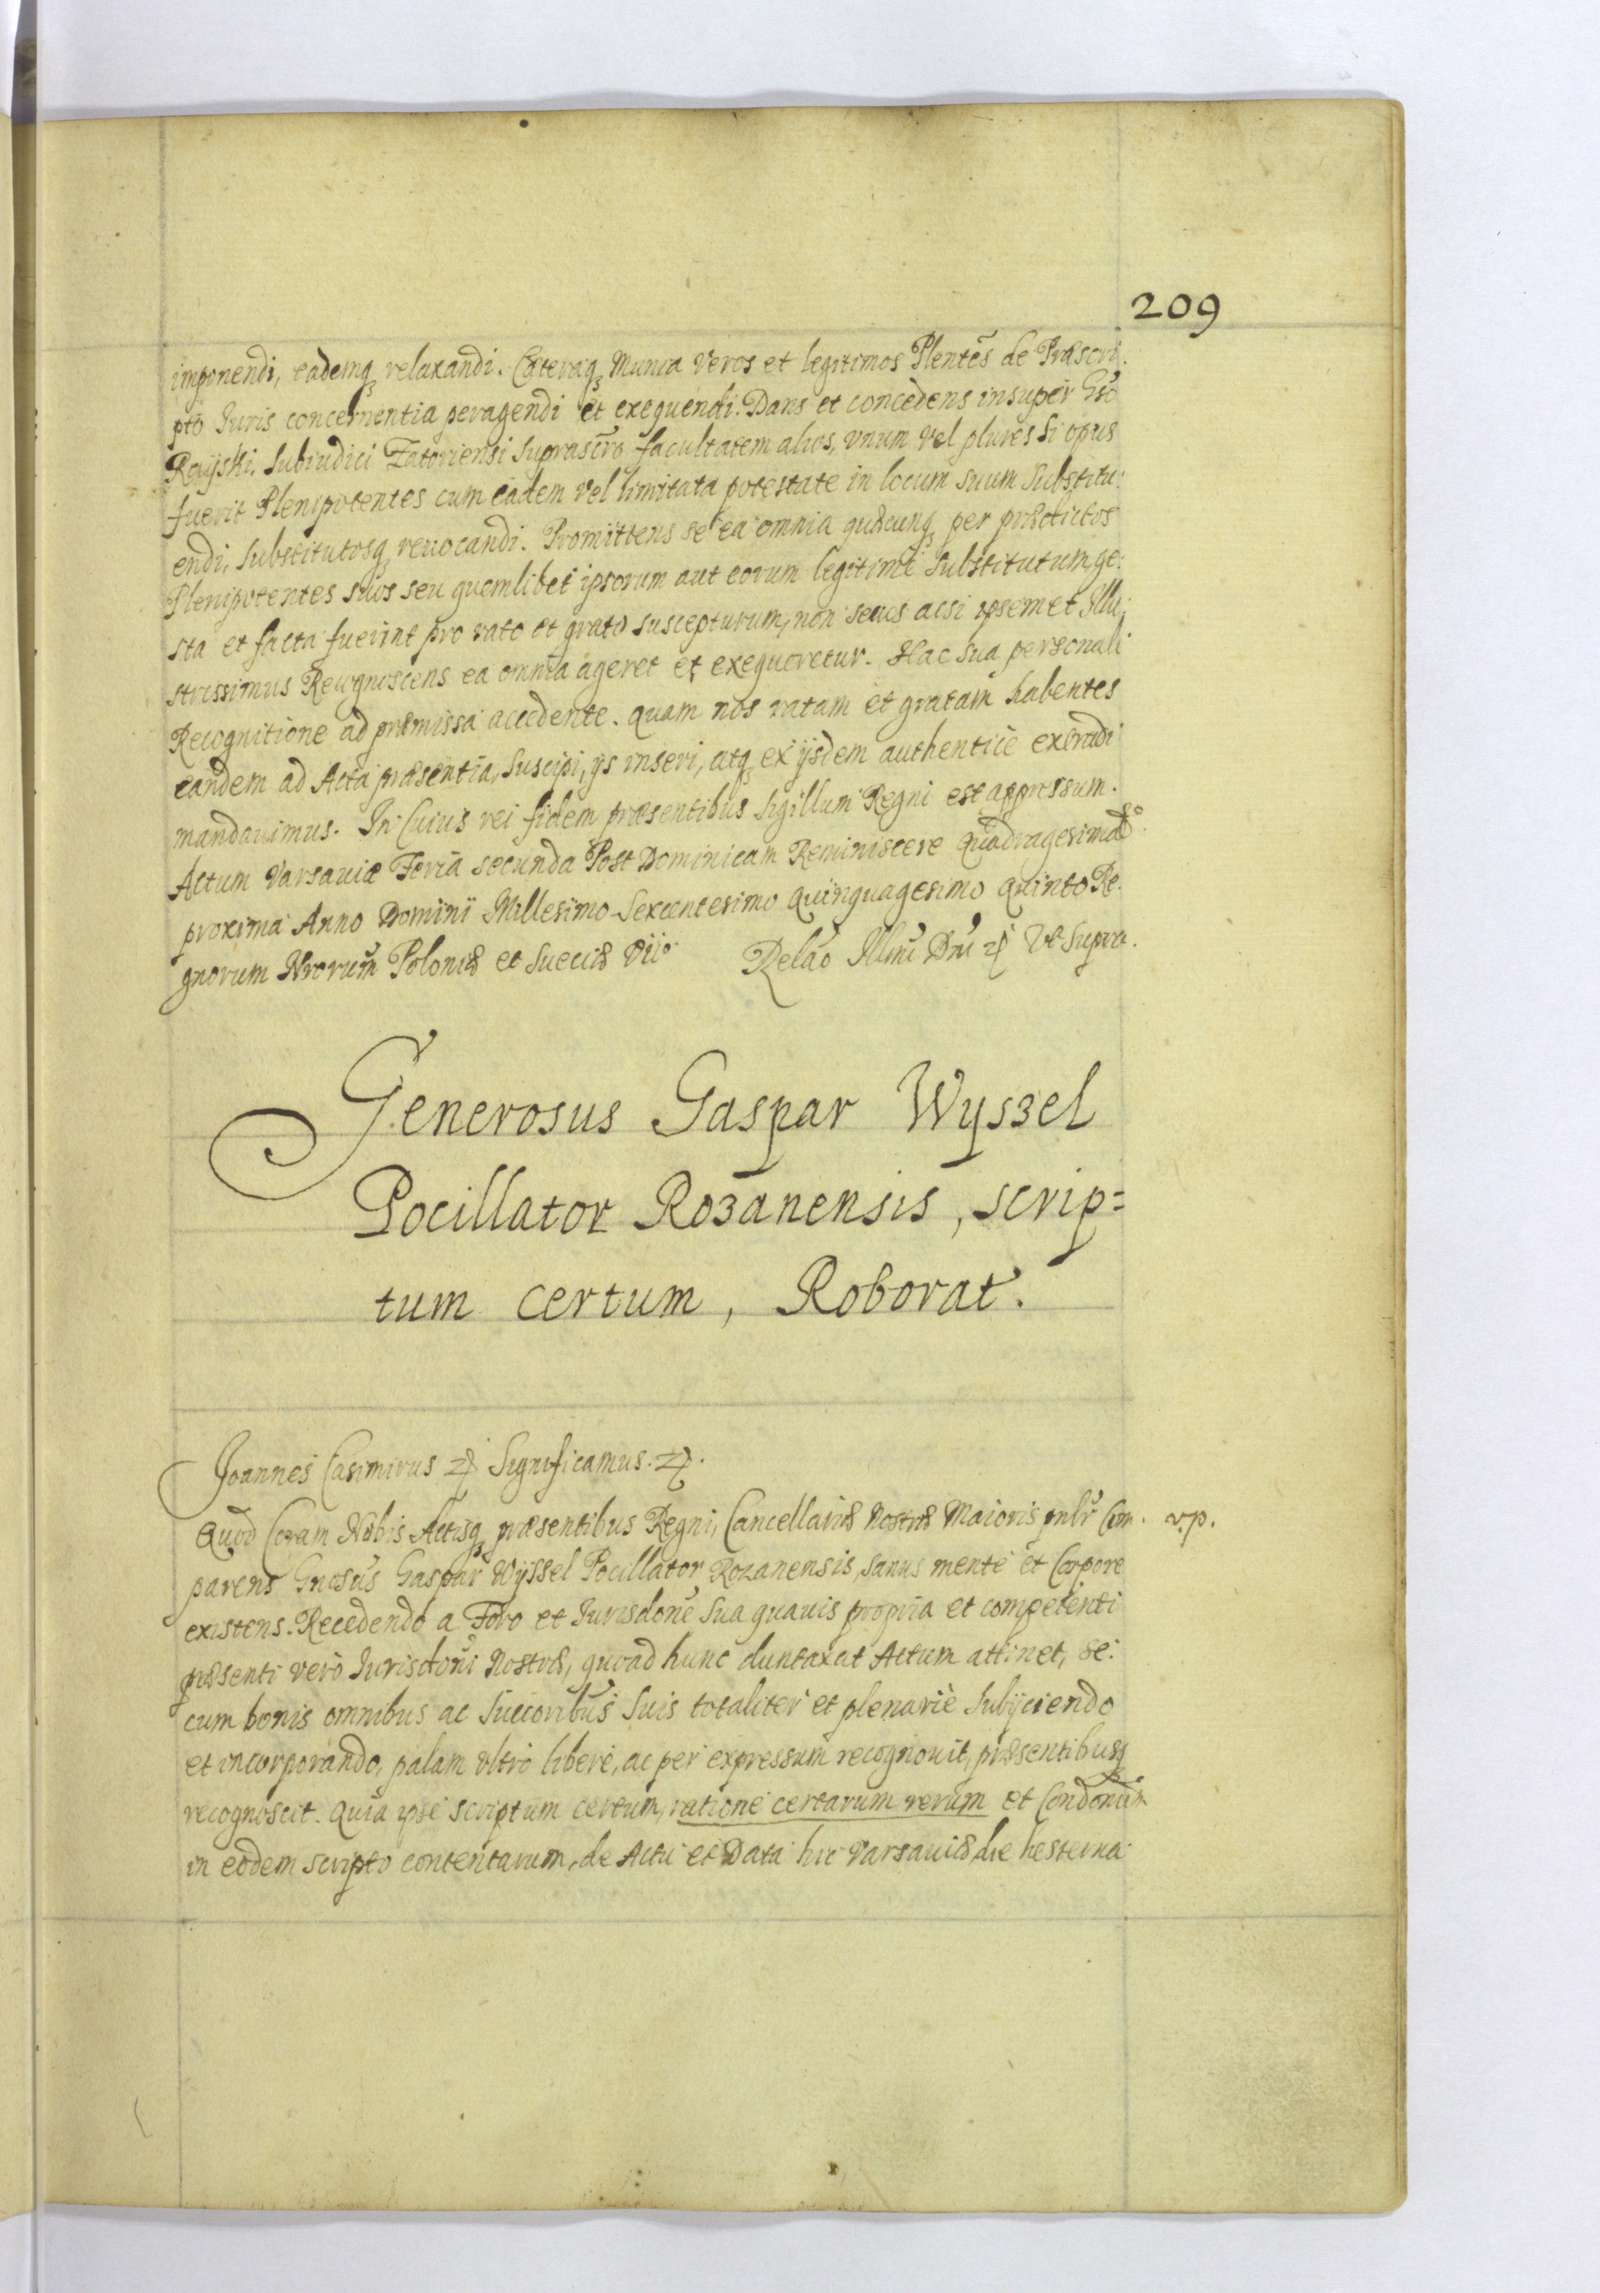 209
imponendi, eademq₃ relaxandi. Cæteraq₃ Munia Veros et legitimos Plentēs de Præscri.
pto Iuris concernentia peragendi et exequendi. Dans et concedens insuper Gso
Rayski Subiudici Zatoriensi Suprascro facultatem alios, vnum vel plures si opus
fuerit Plenipotentes cum eadem vel limitata potestate in locum suum Substitu:
endi, Substitutosq₃ reuocandi. Promittens se ea omnia quæcunq₃ per prædictos
Plenipotentes suos seu quemlibet ipsorum aut eorum legitimè Substitutum ge:
sta et facta fuerint pro rato et grato suscepturum, non secus acsi ipsemet Illu:
strissimus Recognoscens ea omnia ageret et exequeretur. Hac sua personali
Recognitione ad præmissa accedente. quam nos ratam et gratam habentes
eandem ad Acta præsentia, Suscipi, ijs inseri, atq₃ ex ijsdem authenticè extradi
mandauimus. In Cuius rei fidem præsentibus Sigillum Regni est appressum.
Actum Varsauiæ Feria secunda Post Dominicam Reminiscere Quadragesimalē
proxima Anno Domini Millesimo Sexcentesimo Quinquagesimo Quinto Re.
gnorum Nrorum Poloniæ et Sueciæ Vijo Relāo Illmi Dni ꝛꝭ Vt Supra.
Generosus Gaspar Wyszel
Pocillator Rozanensis, scrip=
tum certum, Roborat.
Joannes Casimirus ꝛꝭ Significamus. ꝛꝭ.
Quod Coram Nobis Actisq₃ præsentibus Regni, Cancellariæ Nostræ Maioris pnlr Com. v.p.
parens Gnosus Gaspar Wyssel Pocillator Rozanensis, sanus mente et Corpore
existens. Recedendo a Foro et Iurisdone Sua quauis propria et competenti
præsenti vero Iurisdoni Nostræ, quoad hunc duntaxat Actum attinet, se:
cum bonis omnibus ac Succoribus Suis totaliter et plenariè Subijciendo
et incorporando, palam vltro liberè, ac per expressum recognouit, præsentibusq₃
recognoscit. Quia ipse scriptum certum, ratione certarum rerum et Condonum
in eodem scripto contentarum, de Actu et Data hic Varsauiæ die hesterna